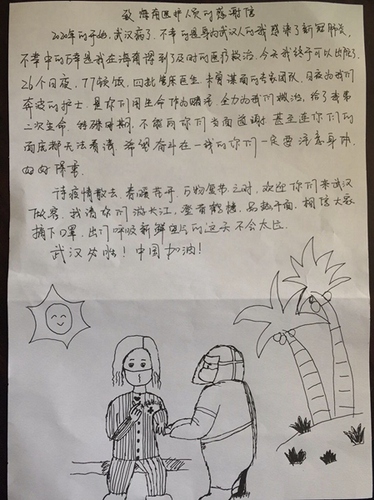 致海南医护人员的感谢信
2020年的开始，武汉病了，不幸的是身为武汉人的我感染了新冠肺炎，
不幸中的万幸是我在海南得到了及时的医疗救治，今天我终于可以出院了。
26个日夜，77顿饭，四批管床医生，未曾谋面的专家团队，日夜为我们
奔波的护士，是你们用生命作为赌注，全力为我们救治，给了我第
二次生命，特殊时期，不能向你们当面致谢，甚至连你们的
面庞都无法看清，希望奋斗在一线的你们一定要注意身体，
日日降幂
待疫情散去，春暖花开，万物复苏之时，欢迎你们来武汉
做客，我请你们游长江，登黄鹤楼，品热干面，相信大家
摘下口罩，出门呼吸新鲜空气的这天不会太远
武汉必胜！中国加油！